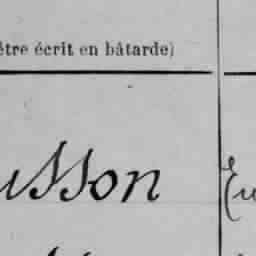 être écrit en bâtarde)
usson